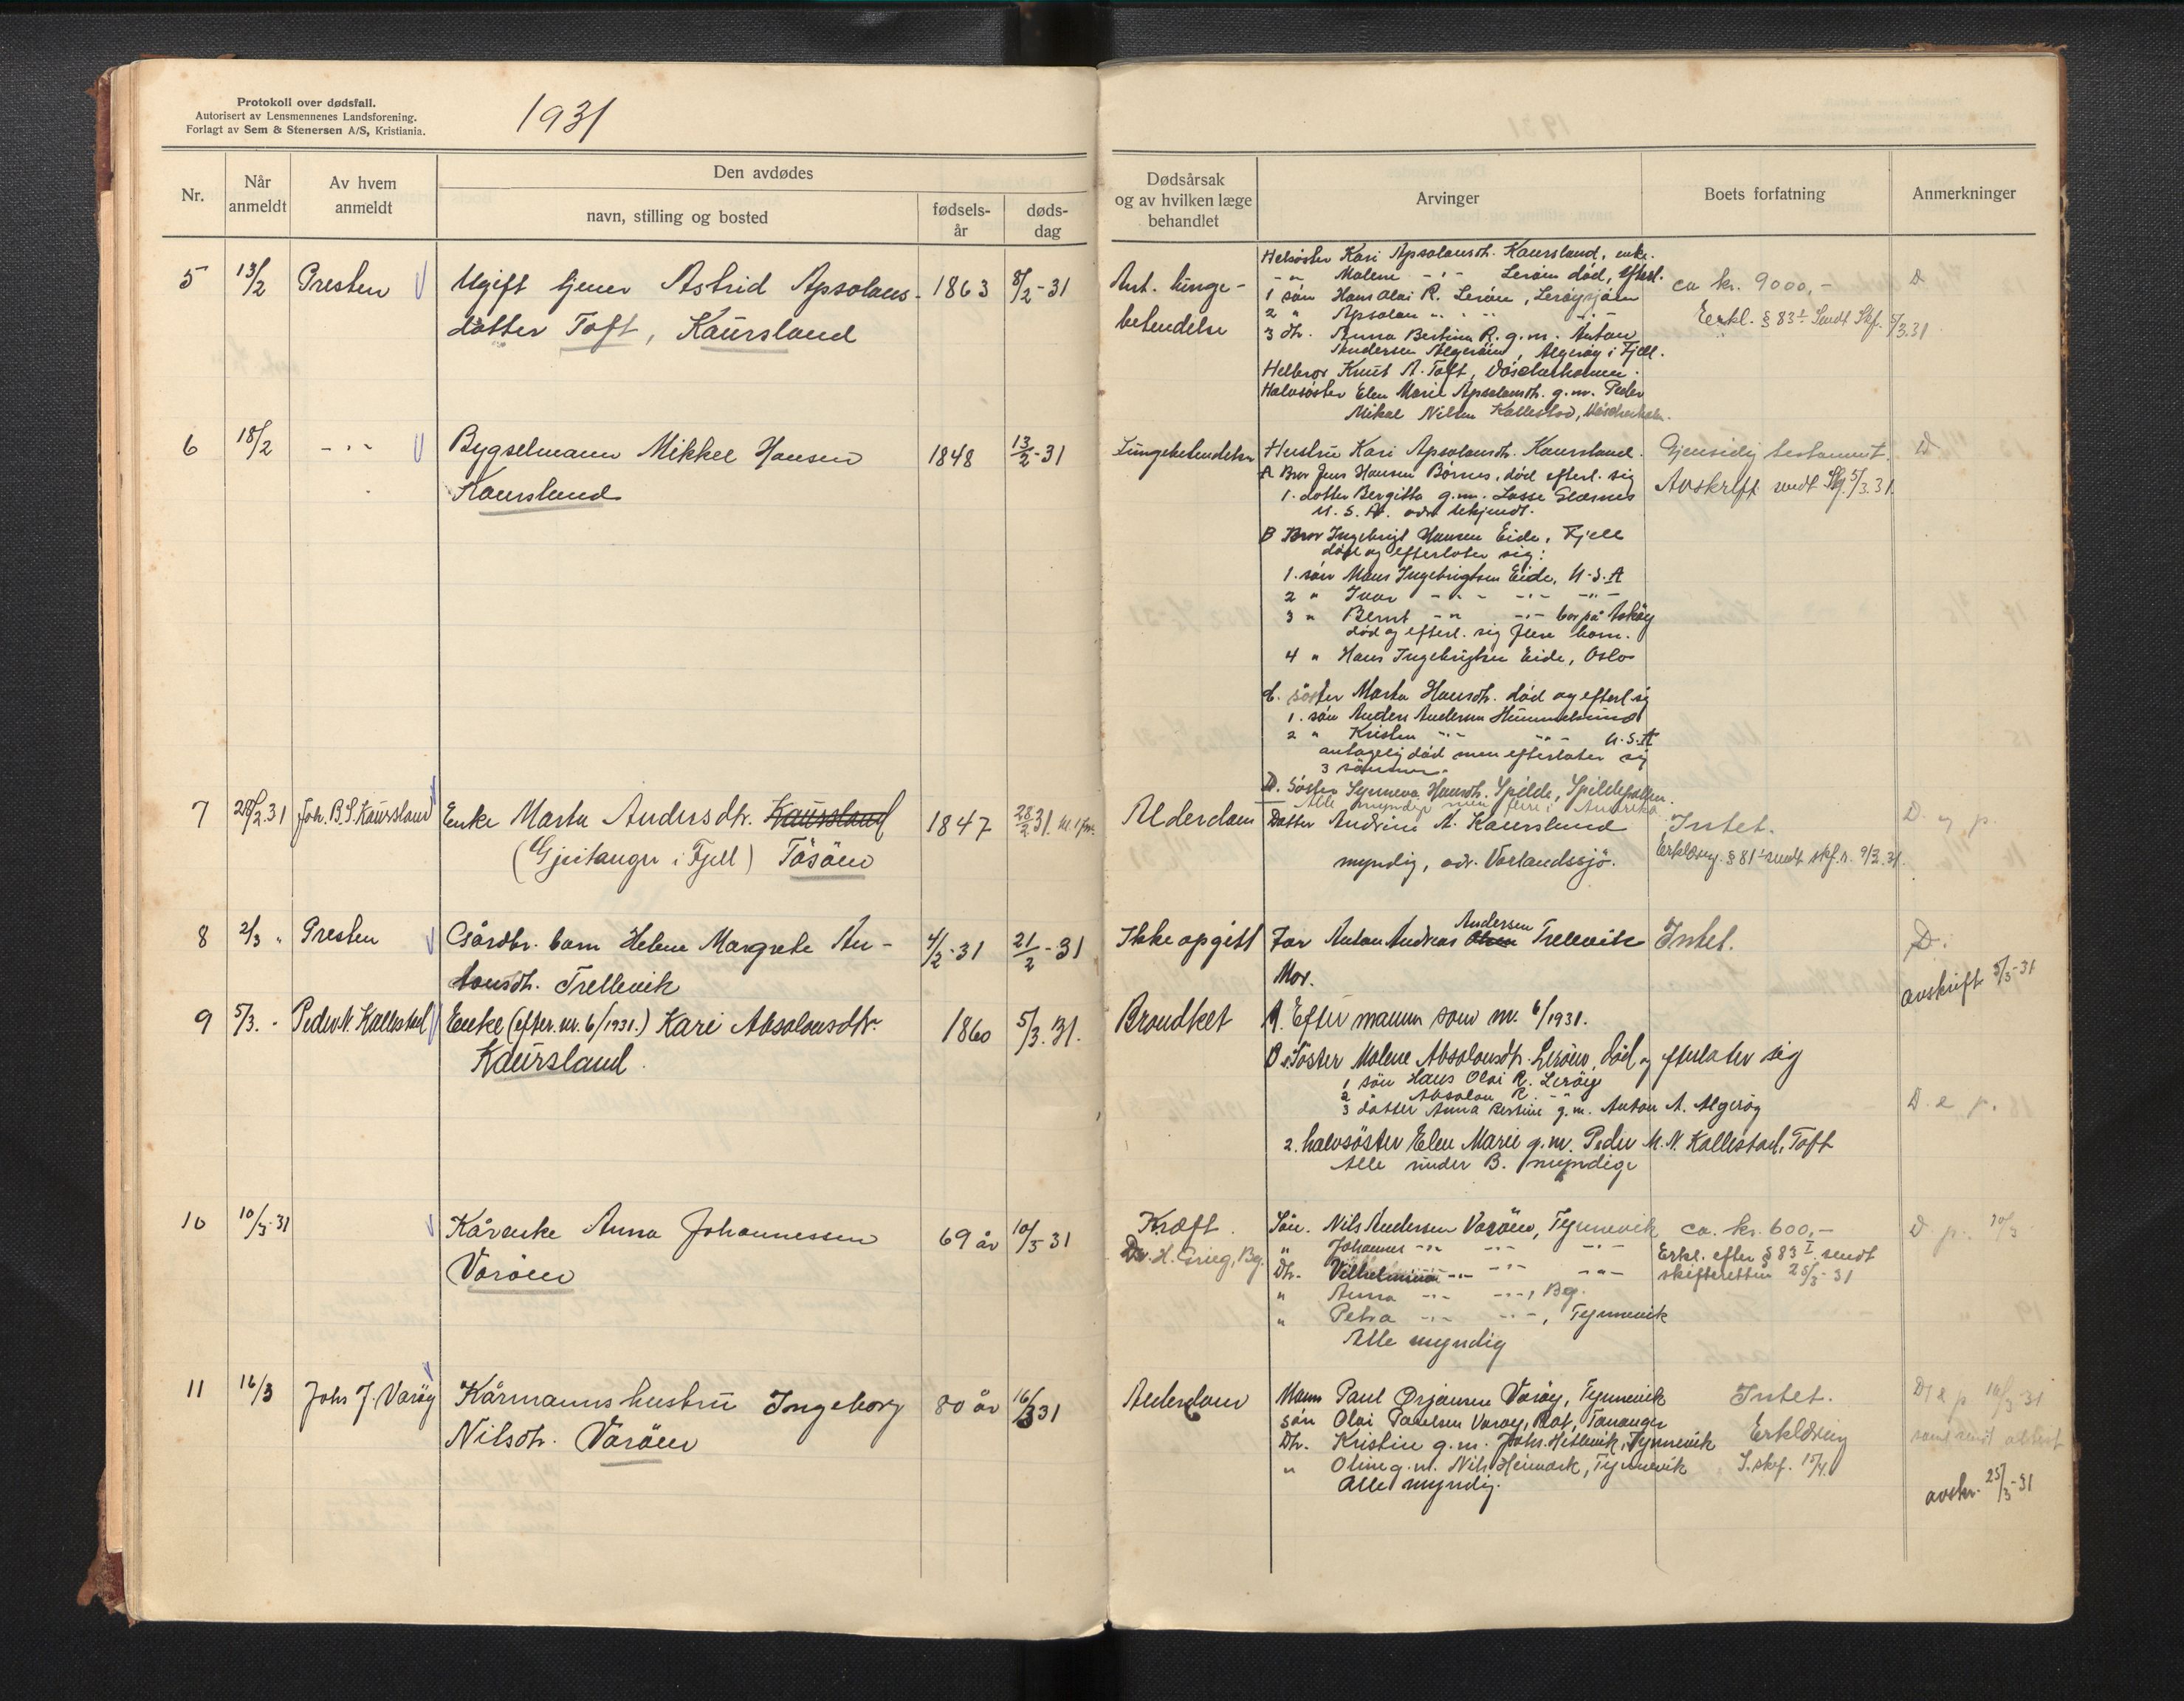 Protokoll over dødsfall.
Autorisert av Lensmennenes Landsforening.
Forlagt av Sem & Stenersen A/S, Kristiania.
1931
Nr.
Når anmeldt
Av hvem anmeldt
Den avdødes
navn, stilling og bosted
fødsels-år
døds-dag
Dødsårsak og av hvilken læge behandlet
Arvinger
Boets forfatning
Anmerkninger
5 13/2 Presten Ugift tjener Astrid Apsolons- 1863 8/2-31
datter Toft, Kaursland
Ant. lunge-
betendelse
Helsöster Kari Apsolonsdt. Kaursland, enke.
-"- Malene -"- Leröen död, efterl.
1 sön Hans Olai R. Leröen, Leröysjöen
2 " Apsolon " " " -"-
3 dt. Anna Bertina R. g.m. Anton
Andersen Algeröen, Algeröy i Fjell.
Helbror Knut A. Toft,
Halvsöster Elen Marie Apsolonsdt. g.m. Peder
Mikal Nilsen Kallestad,
ca kr. 9000,-
Erkl. § 83 I Sendt Skf. 5/3.31
D
6 18/2 -"- Bygselmann Mikkel Hansen 1848 13/2-31
Kaursland
Lungebetendelse
Hustru Kari Apsolonsdt. Kaursland.
A Bror Jens Hansen Börnes, död efterl. sig
1. datter Bergitta g.m. Lasse Glesnes
U.S.A. adr. ukjendt.
B Bror Ingebrigt Hansen Eide, Fjell
död og efterlater sig:
1. sön Mons Ingebrigtsen Eide, U.S.A
2 " Ivar -"- -"- -"-
3 " Bernt -"- -"- bor på Askøy
död og efterl. sig flere barn.
4 " Hans Ingebrigtsen Eide, Oslo
C. söster Marta Hansdt. död og efterl. sig
1. sön Anders Andersen Hummelsund
2 " Kristen -"- -"- U.S.A
antagelig död men efterlater sig
3 sönner.
D. Söster Synneva Hansdt. Spilde, Spildepollen.
Alle myndige men flere i Amerika
Gjensidig testament.
Avskrift sendt Skf. 5/3.31.
D
7 28/2.31 Joh. B.S. Kaursland Enke Marta Andersdtr. Kaursland 1847 28/2 31
(Gjeitanger i Fjell) Tösöen
Alderdom
Datter Andrine A. Kaursland
myndig, adr. Vorlandssjö.
Intet.
Erklæring. § 81 I sendt skf.r. 9/3.31.
D. og p.
8 2/3 " Presten Gårdbr. barn Helene Margrete An- 4/2-31 21/2-31
tonsdt. Trellevik
Ikke opgitt
Far Anton Andreas Olsen Andersen Trellevik
Mor.
Intet.
D.
avskrift 5/3-31
9 5/3. - Peder N. Kallestad Enke (efter nr. 6/1931.) Kari Absalonsdtr. 1860 5/3.31.
Kaursland
Brandket
A. Efter mannen som nr. 6/1931.
B. Söster Malene Absalonsdt. Leröen, död og efterlater sig
1 sön Hans Olai R. Leröy
2 " Absalon R. -"-
3 datter Anna Bertine g.m. Anton A. Algeröy
2. halvsöster Elen Marie g.m. Peder M.N. Kallestad, Toft
Alle under B. myndige
D. & p.
10 10/3-31 Kårenke Anna Johannessen 69 år 10/3 31
Varöen
Kræft.
Dr. H. Grieg, Bg.
Sön. Nils Andersen Varöen, Tynnevik
" Johannes -"- -"- -"-
Dt. Vilhelmina -"- -"- -"-
" Anna -"- -"-, Bg.
" Petra -"- -"-, Tynnevik
Alle myndig
ca. kr. 600,-
Erkl. efter § 83 I sendt
skifteretten 25/3-31
D. p. 10/3
11 16/3 Johs J. Varöy Kårmanns hustru Ingeborg 80 år 16/3 31
Nilsdt. Varöen
Alderdom
Mann Paul Ørjansen Varöy, Tynnevik
sön Olai Paulsen Varöy, Tananger
Dt. Kristine g.m. Johs. Hitlevik, Tynnevik
" Oline g.m. Nils Heimark, Tynnevik
Alle myndig.
Intet.
Erklæring
S. skf. 15/4.
D & p 16/3-31
samt sendt attest
avskr. 25/3-31